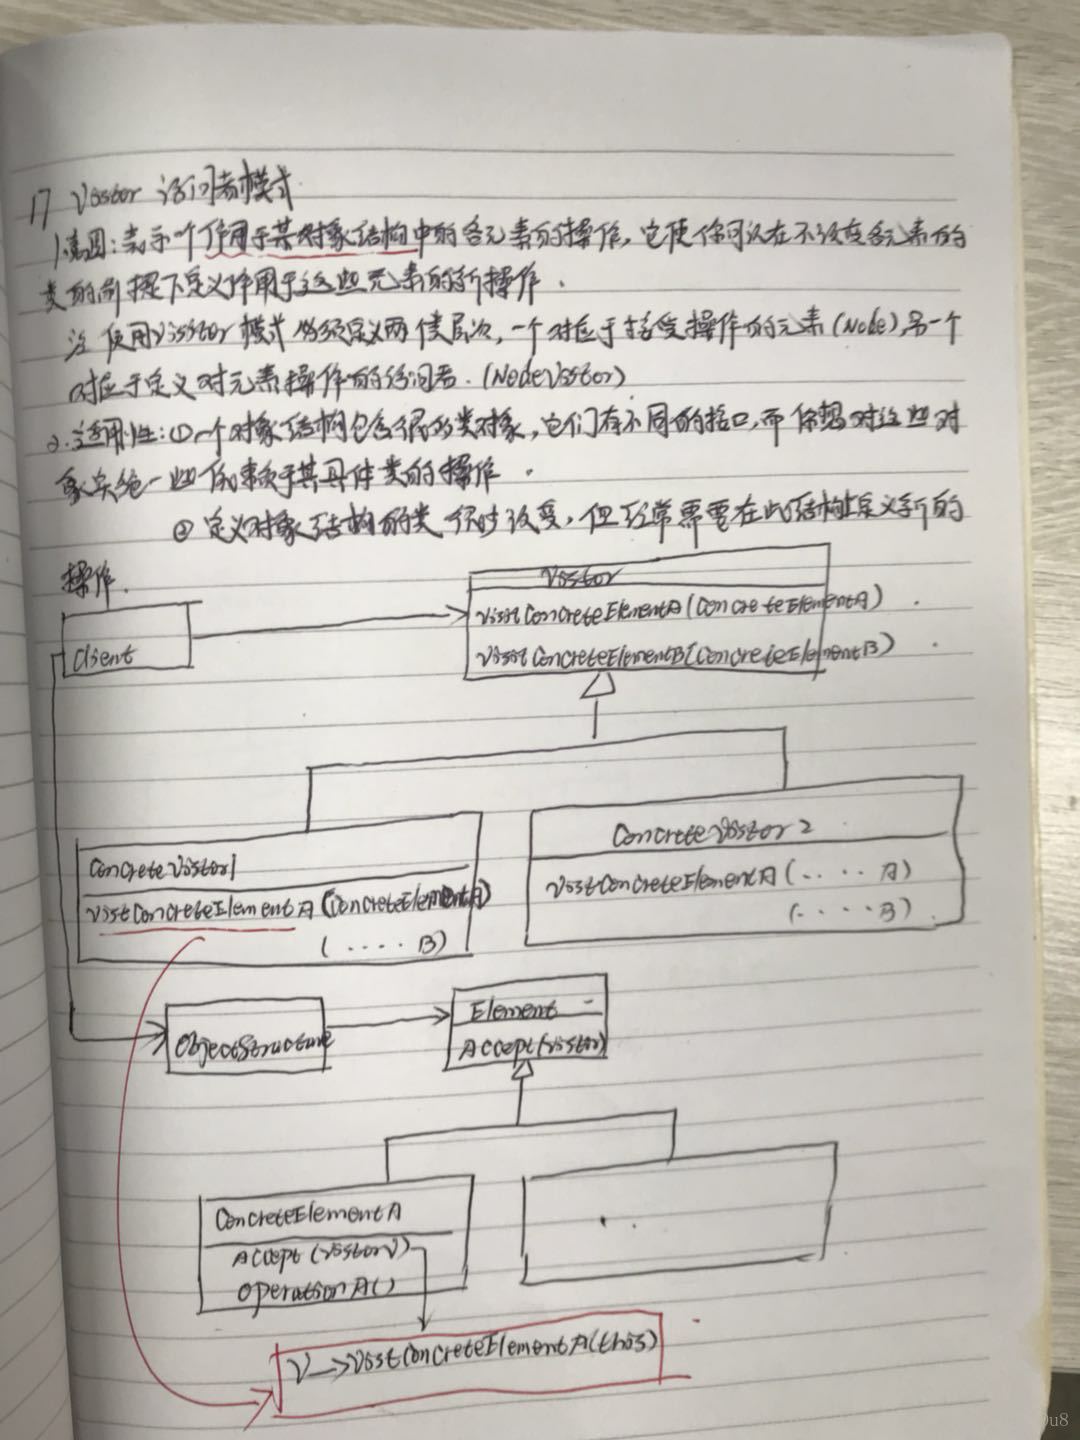 17 Visitor 访问者模式
1.意图：表示一个作用于某对象结构中的各元素的操作，它使你可以在不改变各元素的
类的前提下定义作用于这些元素的新操作．
注 使用Visitor模式必须定义两个类层次，一个对应于接受操作的元素(Node)另一个
对应于定义对元素操作的访问者．(NodeVisitor)
2.适用性：①一个对象结构包含很多类对象，它们有不同的接口，而你想对这些对
象实施一些依赖于其具体类的操作．
② 定义对象结构的类很少改变，但经常需要在此结构上定义新的
操作．
Visitor
VisitConcreteElementA(ConcreteElementA)
VisitConcreteElementB(ConcreteElementB)
Client
ConcreteVisitor1
VisitConcreteElementA(ConcreteElementA)
(....B)
ConcreteVisitor2
VisitConcreteElementA(....A)
(....B)
ObjectStructure
Element
Accept(Visitor)
ConcreteElementA
Accept(Visitor V)
OperationA()
V→VisitConcreteElementA(this)